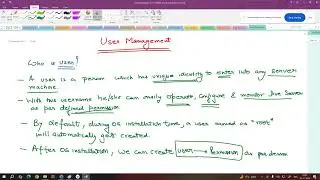 User Management
Who is user?
- A user is a person which has unique identity to enter into any server
machine.
- With this username he/she can easily operate, Configure & monitor live Server
as per defined permission.
- By default, during OS installation time, a user named as "root"
will automatically get created.
- After OS installation, we can create user → permission as per demand